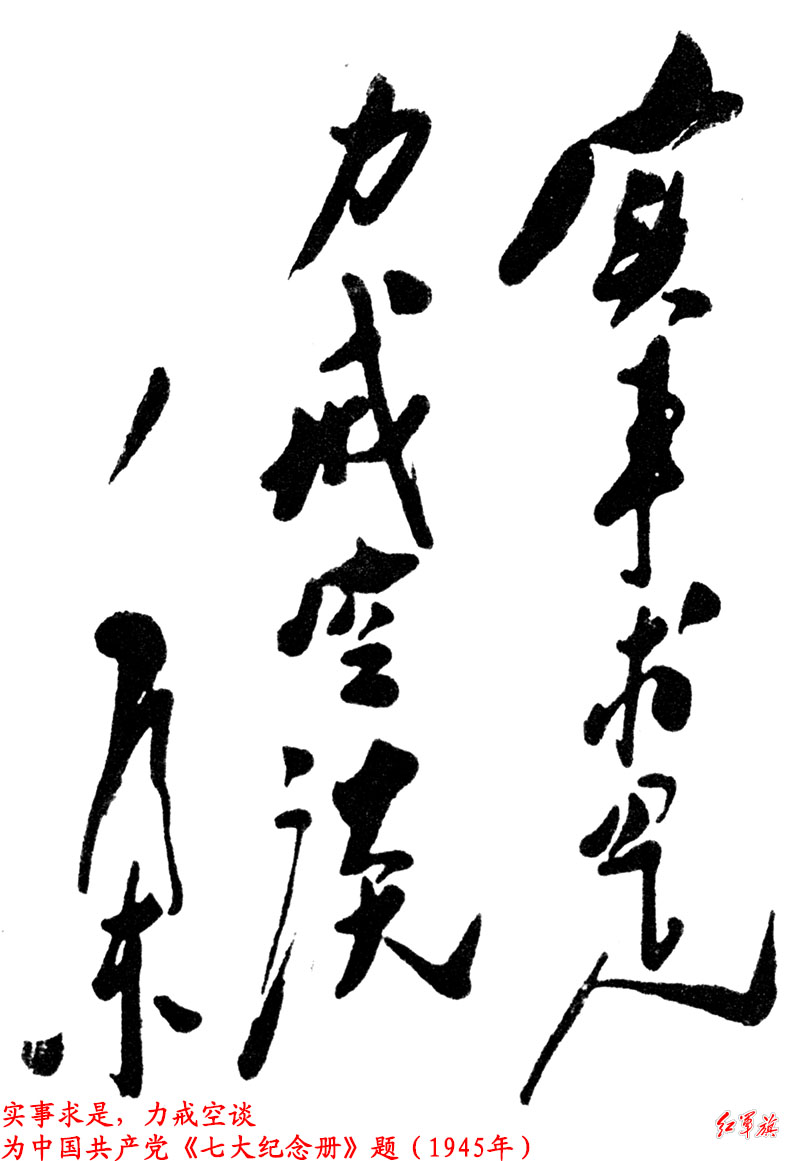 实事求是
力戒空谈
毛泽东
实事求是，力戒空谈
为中国共产党《七大纪念册》题（1945年）
红军旗